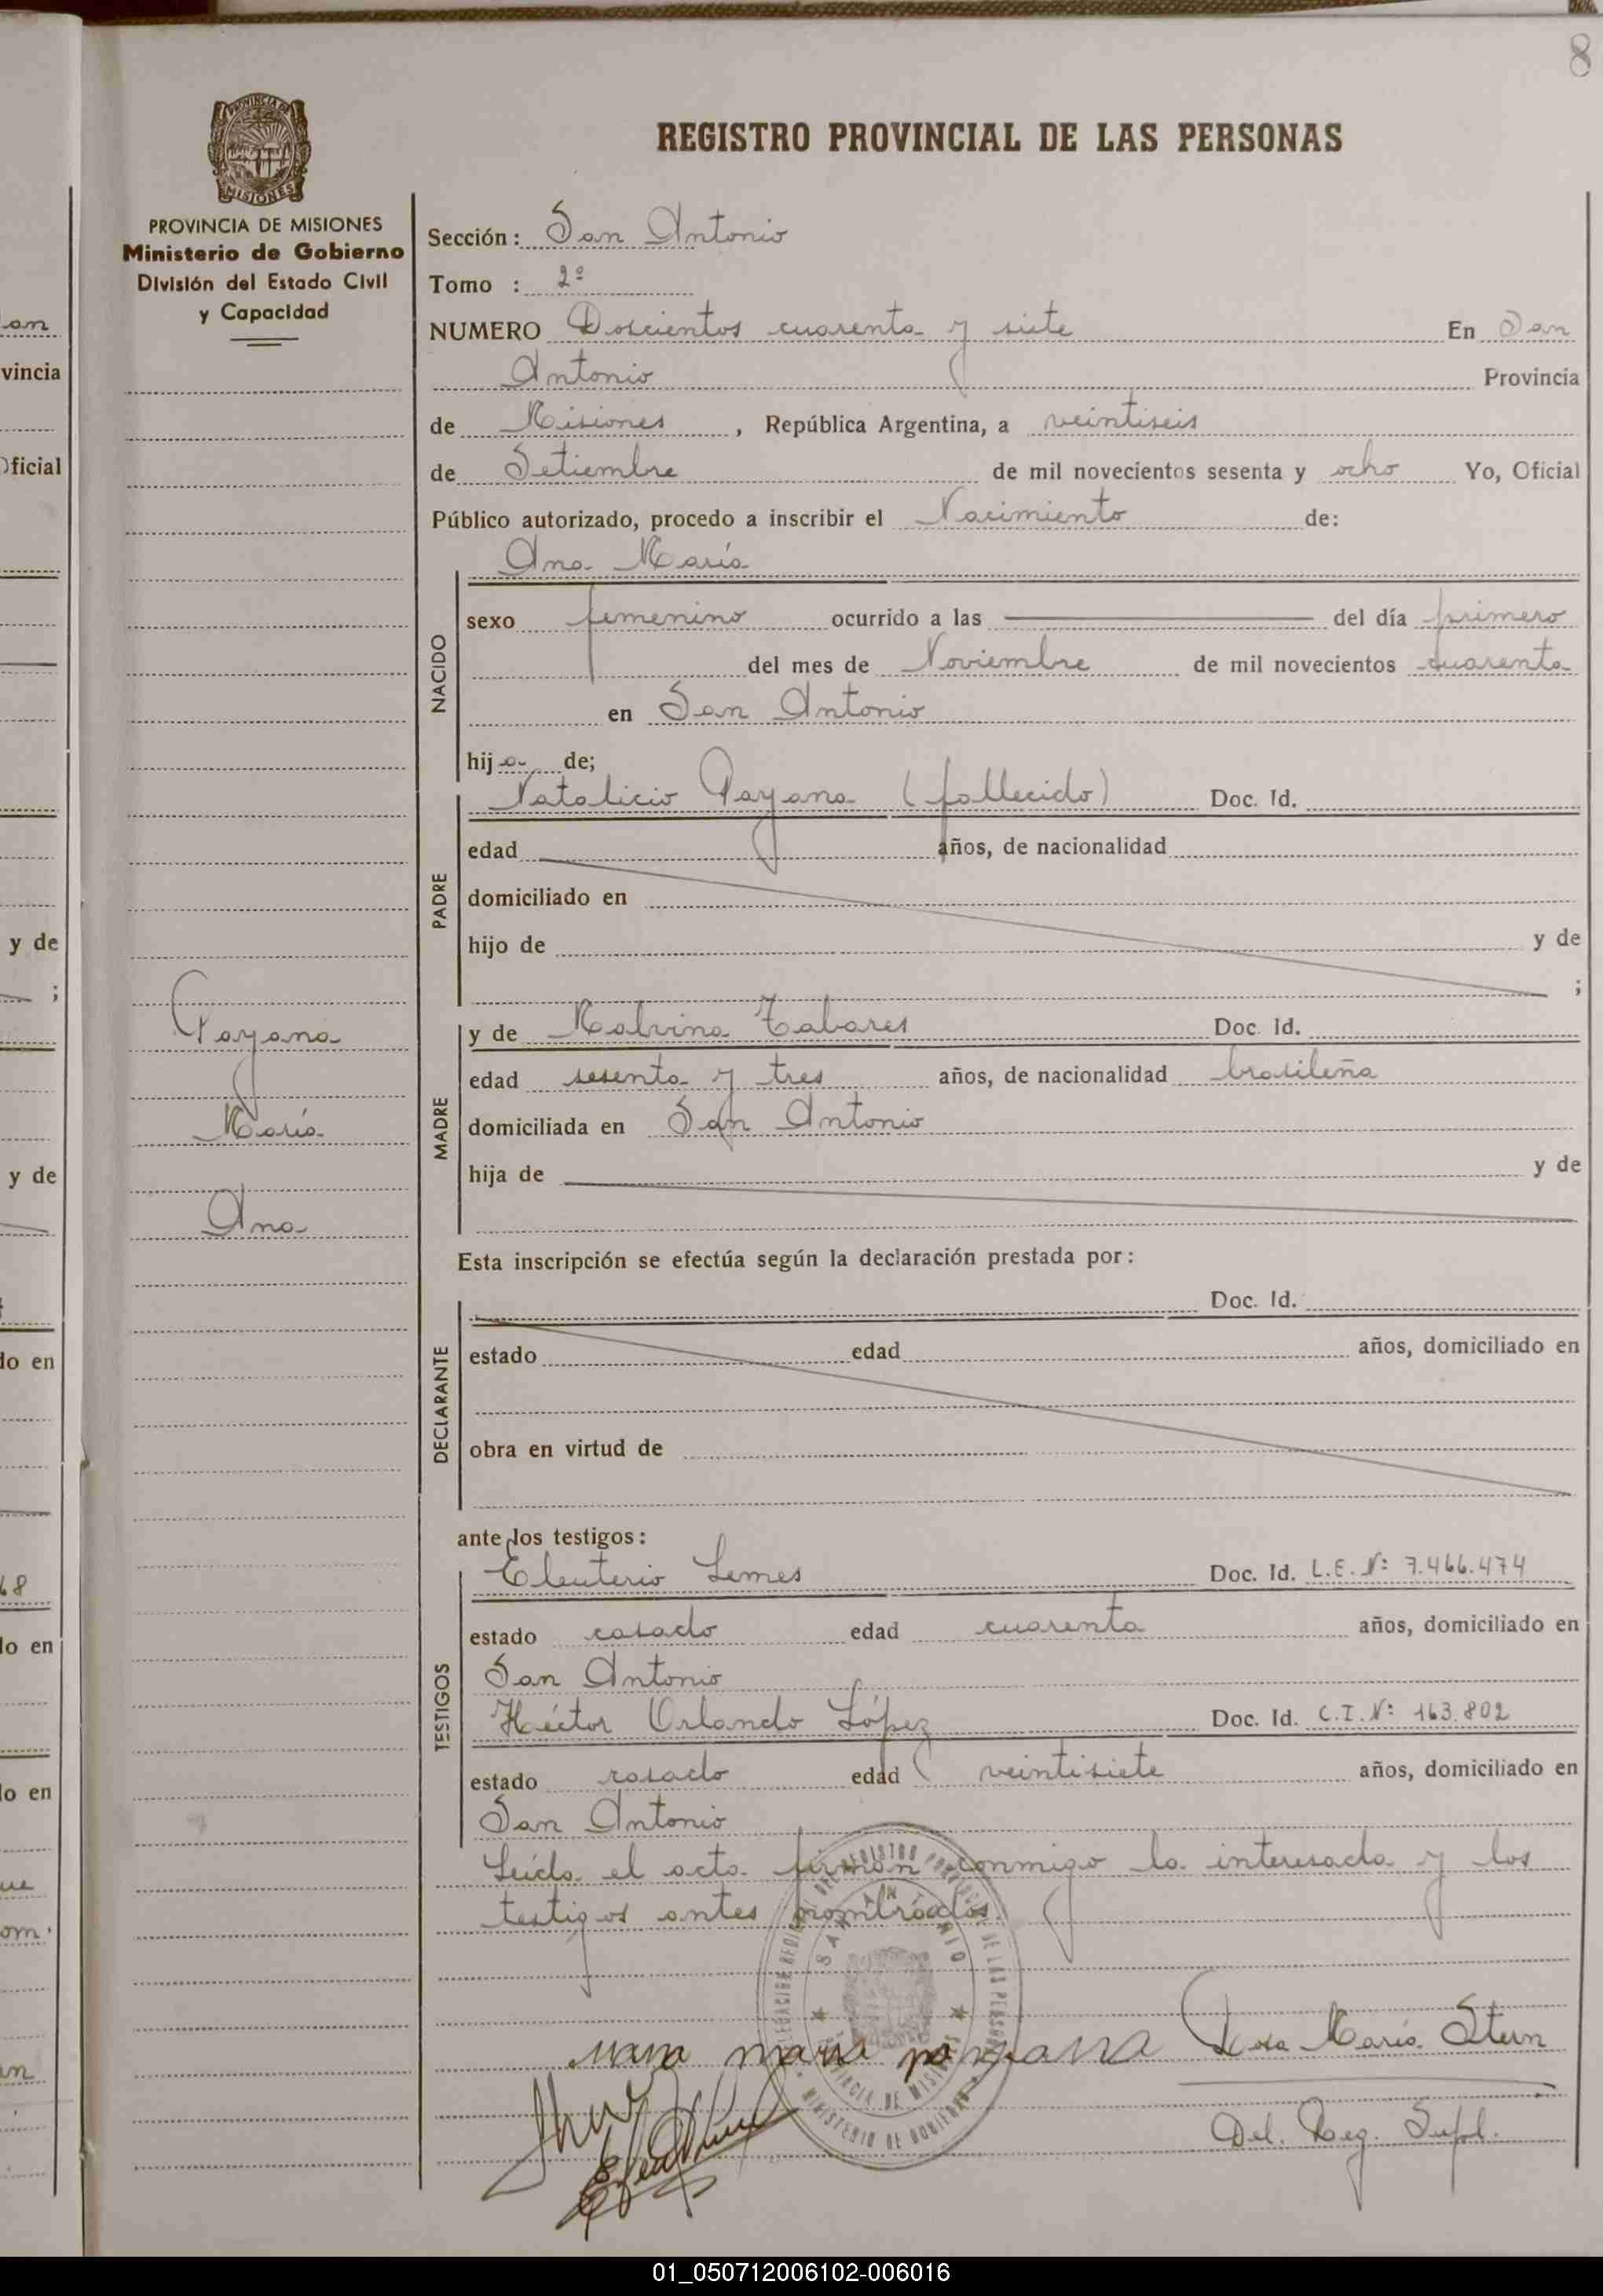 8
REGISTRO PROVINCIAL DE LAS PERSONAS
PROVINCIA DE
MISIONES
PROVINCIA DE MISIONES
Ministerio de Gobierno
División del Estado Civil
y Capacidad
Payana
María
Ana
Sección: San Antonio
Tomo : 2º
NUMERO Doscientos cuarenta y siete En San
Antonio Provincia
de Misiones, República Argentina, a veintiseis
de Setiembre de mil novecientos sesenta y ocho Yo, Oficial
Público autorizado, procedo a inscribir el Nacimiento de:
Ana María
NACIDO
sexo femenino ocurrido a las del día primero
del mes de Noviembre de mil novecientos cuarenta
en San Antonio
hija de;
PADRE
Natalicio Payana (fallecido) Doc. Id.
edad años, de nacionalidad
domiciliado en
hijo de y de
;
MADRE
y de Malvina Tabares Doc. Id.
edad sesenta y tres años, de nacionalidad brasileña
domiciliada en San Antonio
hija de y de
Esta inscripción se efectúa según la declaración prestada por:
DECLARANTE
Doc. Id.
estado edad años, domiciliado en
obra en virtud de
ante los testigos:
TESTIGOS
Eleuterio Lemes Doc. Id. L.E. Nº 7.466.474
estado casado edad cuarenta años, domiciliado en
San Antonio
Héctor Orlando López Doc. Id. C.I. Nº 163.802
estado casado edad veintisiete años, domiciliado en
San Antonio
Leída el acta firman conmigo la interesada y los
testigos antes nombrados.
maria payana Rosa María Stern
Del. Reg. Supl.
SAN ANTONIO
PROVINCIA DE MISIONES
MINISTERIO DE GOBIERNO
an
vincia
Oficial
y de
;
y de
do en
68
do en
do en
ue
om.
an
01_050712006102-006016